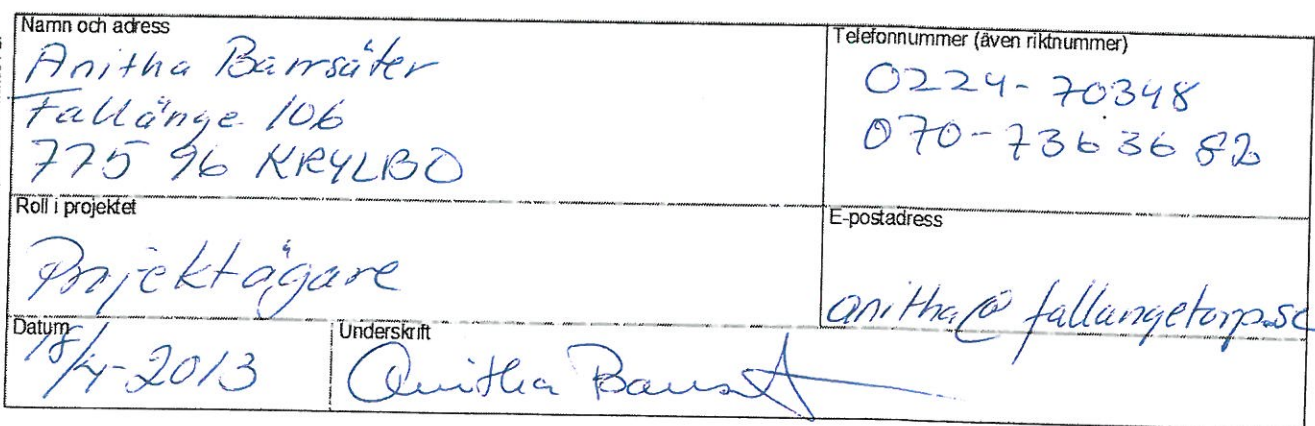 Namn och adress
Anitha Barrsäter
Fallänge 106
775 96 KRYLBO
Telefonnummer (även riktnummer)
0224-70348
070-736 36 82
Roll i projektet
Projektägare
E-postadress
anitha@fallangetorp.se
Datum
18/4-2013
Underskrift
Anitha